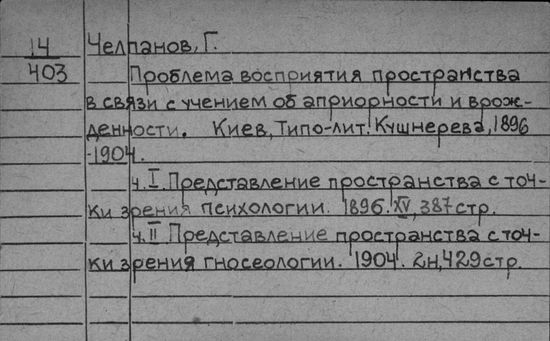 14
403
Челпанов, Г.
Проблема восприятия пространства
в связи с учением об априорности и врож-
денности. Киев, Типо-лит. Кушнерева, 1896
-1904.
ч. I. Представление пространства с точ-
ки зрения психологии. 1896. XV, 387 стр.
ч. II Представление пространства с точ-
ки зрения гносеологии. 1904. 2н, 429 стр.